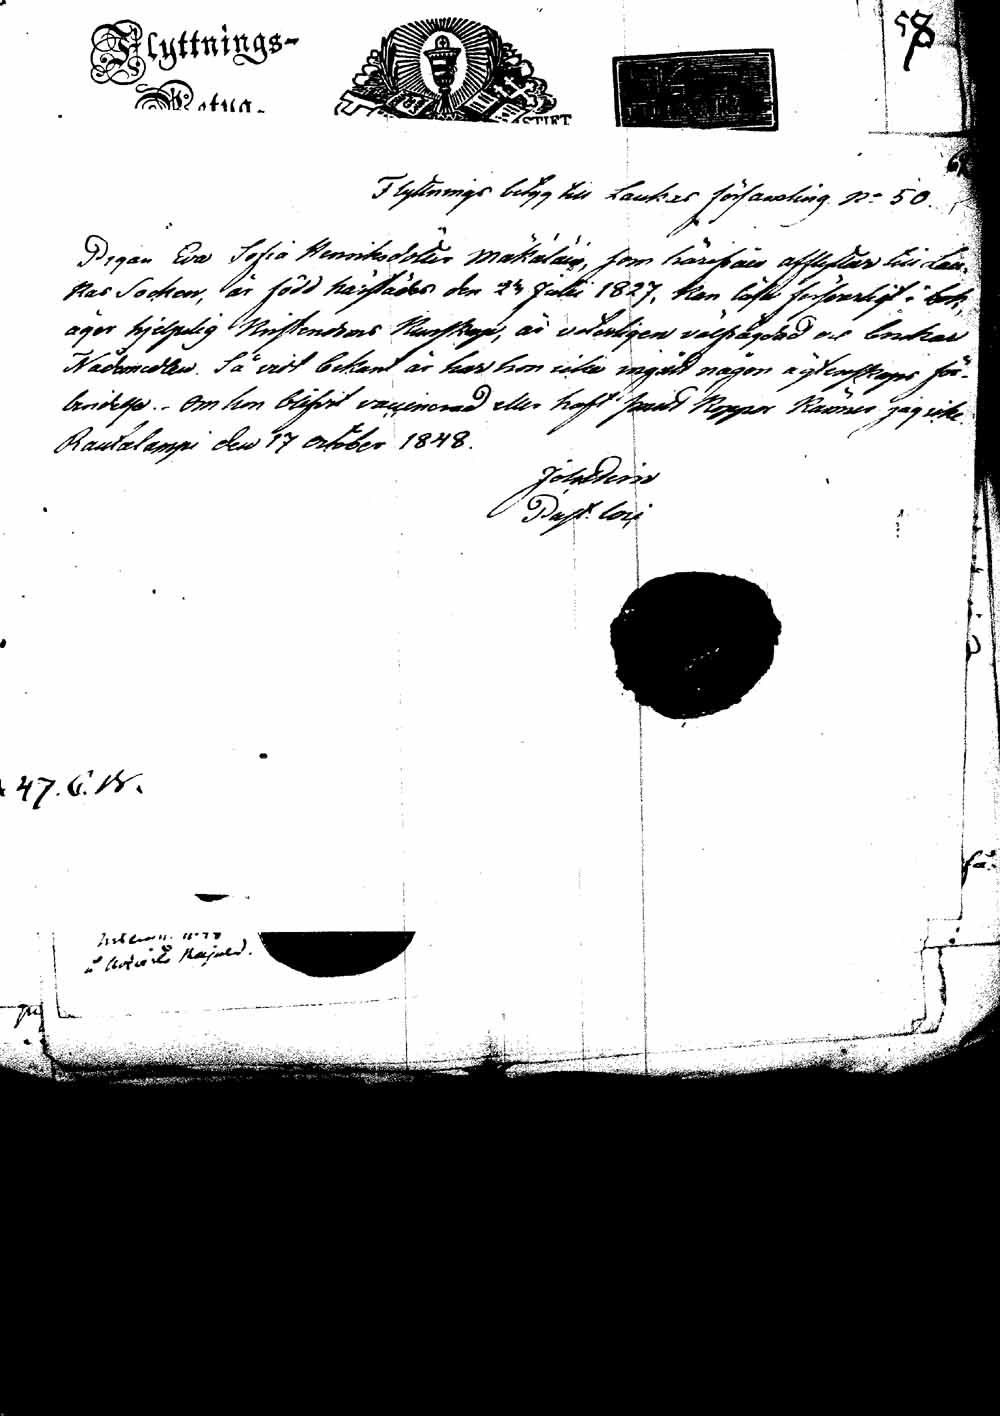 Flyttnings-
Betyg
STIFT
58
Flyttnings betyg till Laukas församling No 50.
Pigan Eva Sofia Henriksdotter Mäkäläin, som härifrån afflyttar till Lau-
kas Socken, är född härstädes den 24 Julii 1827, kan läsa försvarligt i bok,
äger hjelplig Kristendoms Kunskap, är välfrägdad och brukar
Nådemedlen. Så vidt bekant är har hon icke ingått någon ägtenskaps för-
bindelse. Om hon blifvit vaccinerad eller haft Koppor känner jag icke.
Rautalampi den 17 October 1848.
Past. Loci
47.
få